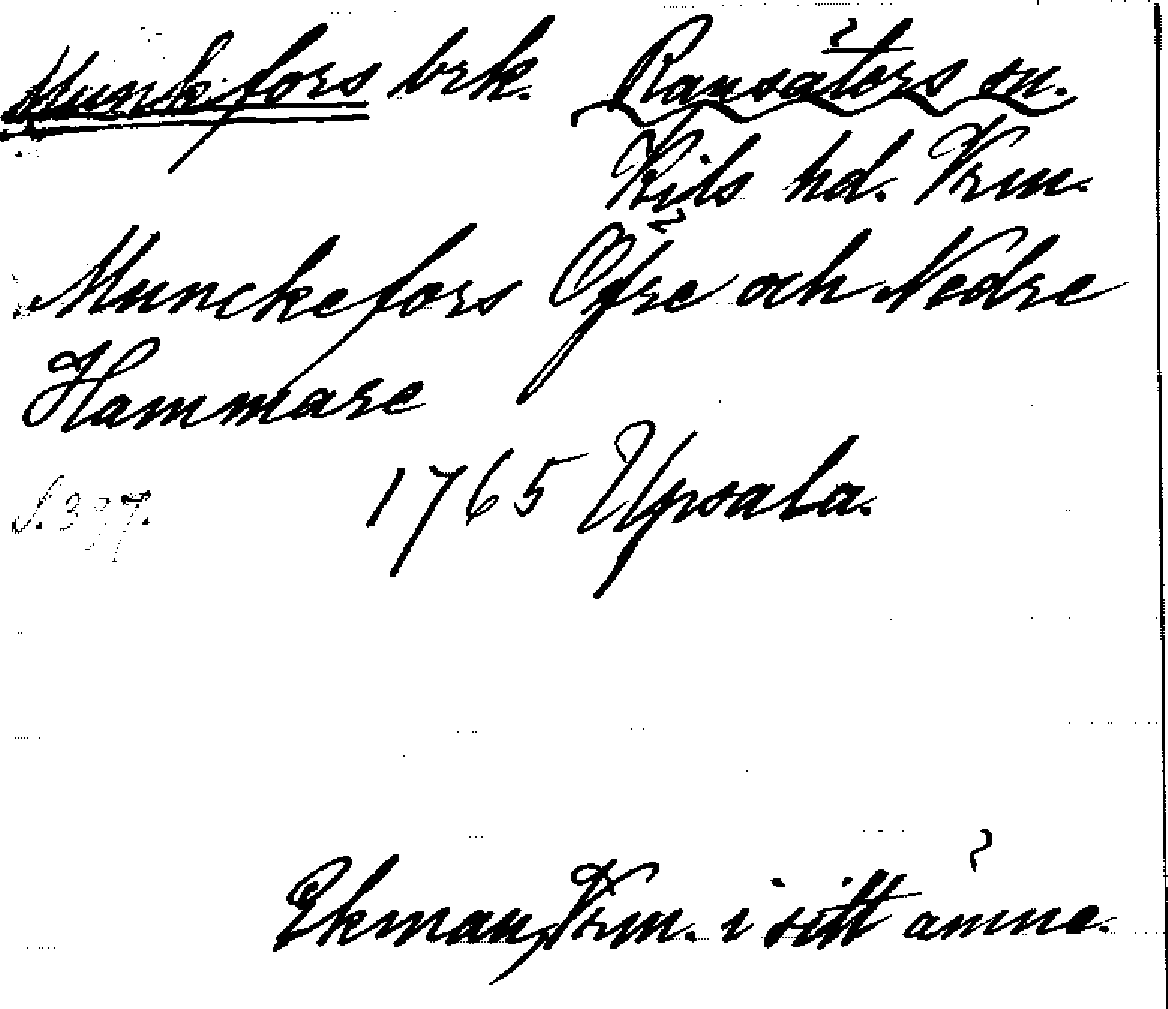 Munkfors brk. Ransäters sn.
Kils hd. Vrm.
Munckefors Öfre och Nedre
Hammare
S. 397. 1765 Upsala.
Ekman, Vrm. i sitt ämne.